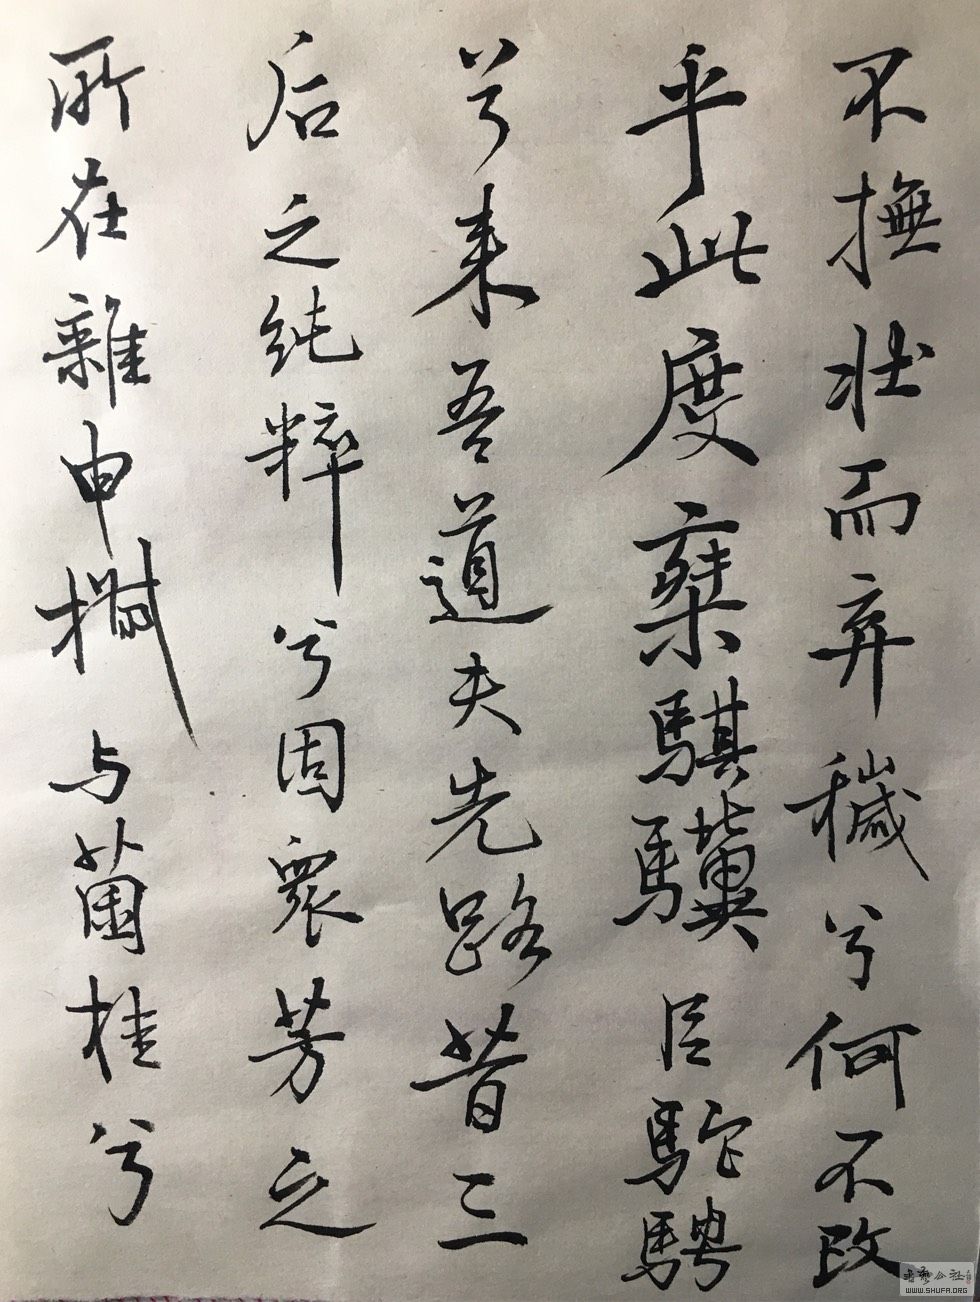 不撫壯而弃穢兮何不改
乎此度椉騏驥㠯駝騁
兮来吾道夫先路昔三
后之純粹兮固衆芳之
所在雜申椒与菌桂兮
书艺公社
WWW.SHUFA.ORG